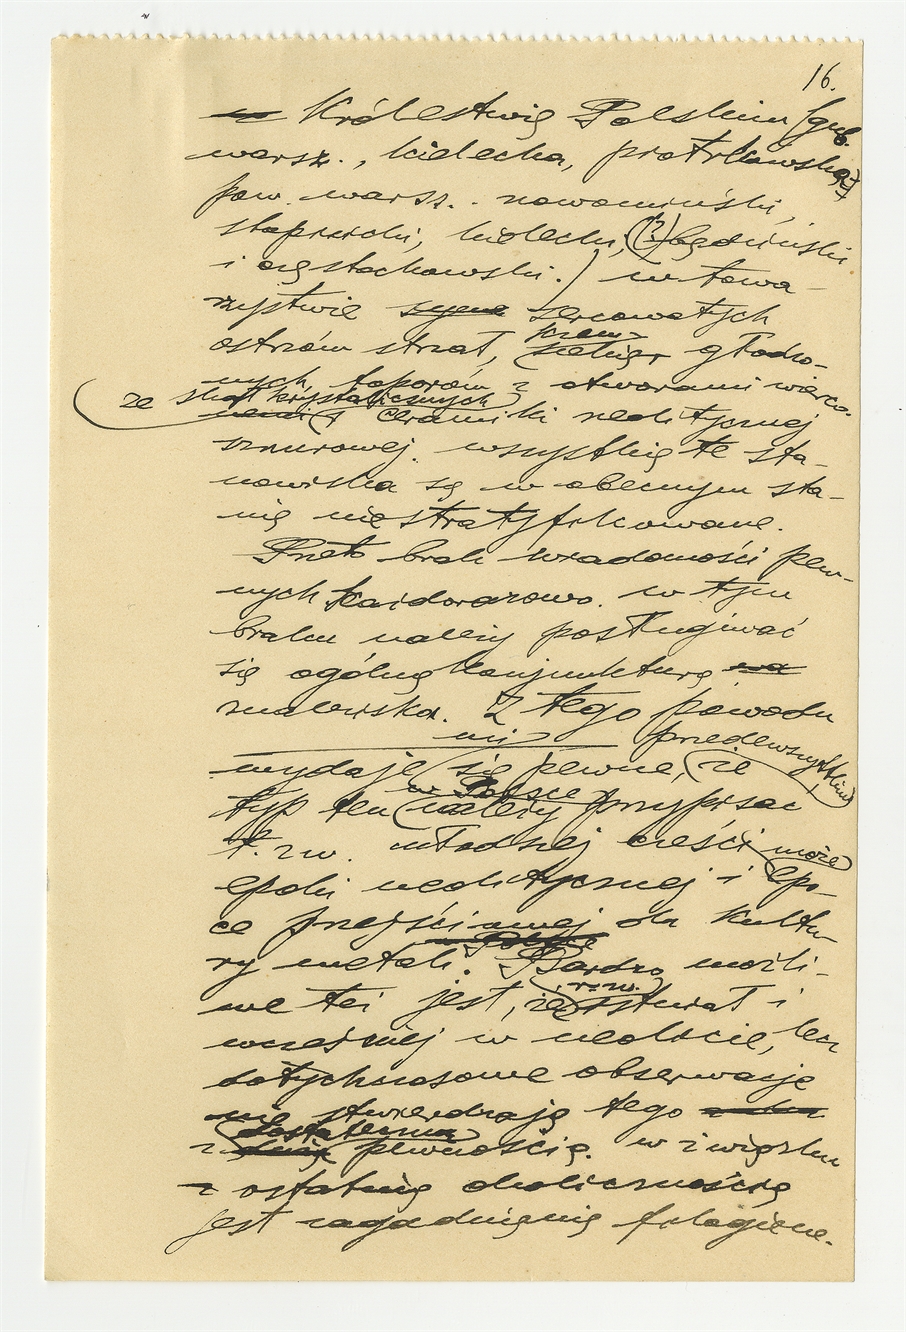 16.
w Królestwie Polskim (gub.
warsz., kielecka, piotrkowska,
pow. warsz. nowomiński,
stopnicki, kielecki, (?) będziński
i częstochowski.) w towa-
rzystwie sercowatych
ostrzów strzał, krzem. siekier gładzo-
nych, toporów z otworami wierco-
nemi ze skał krystalicznych i ceramiki neolitycznej
sznurowej. Wszystkie te sta-
nowiska są w obecnym sta-
nie niestratyfikowane.
Przeto brak wiadomości pew-
nych każdorazowo. W tym
braku należy posługiwać
się ogólną konjunkturą
znaleziska. Z tego powodu
wydaje mi się pewne, że przedewszystkim
typ ten w Polsce należy przypisać
t. zw. młodszej części
epoki neolitycznej i może epo-
ce przejściowej do kultu-
ry metali. Bardzo możli-
we też jest, że istniał i
wcześniej w neolicie, lecz
dotychczasowe obserwacje
nie stwierdzają tego
z dostateczną pewnością. W związku
z ostatnią okolicznością
jest zagadnienie filogiene-